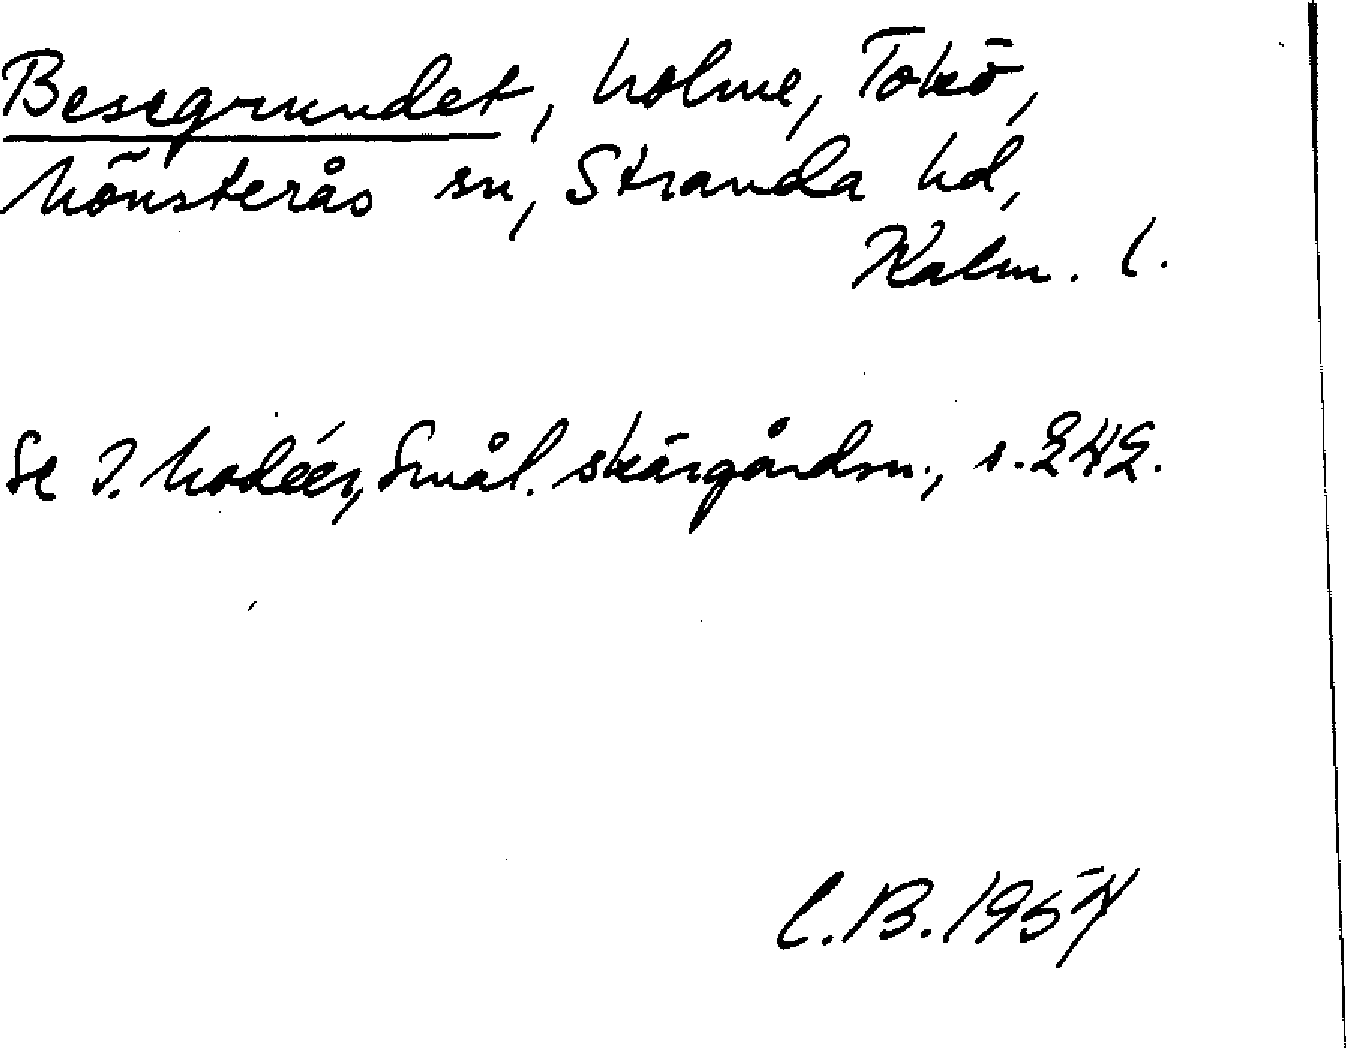 Besegrundet, holme, Tokö,
Mönsterås sn, Stranda hd,
Kalm. l.
Se I. Modéer, Smål. skärgårdsn., s. 242.
C.B. 1954